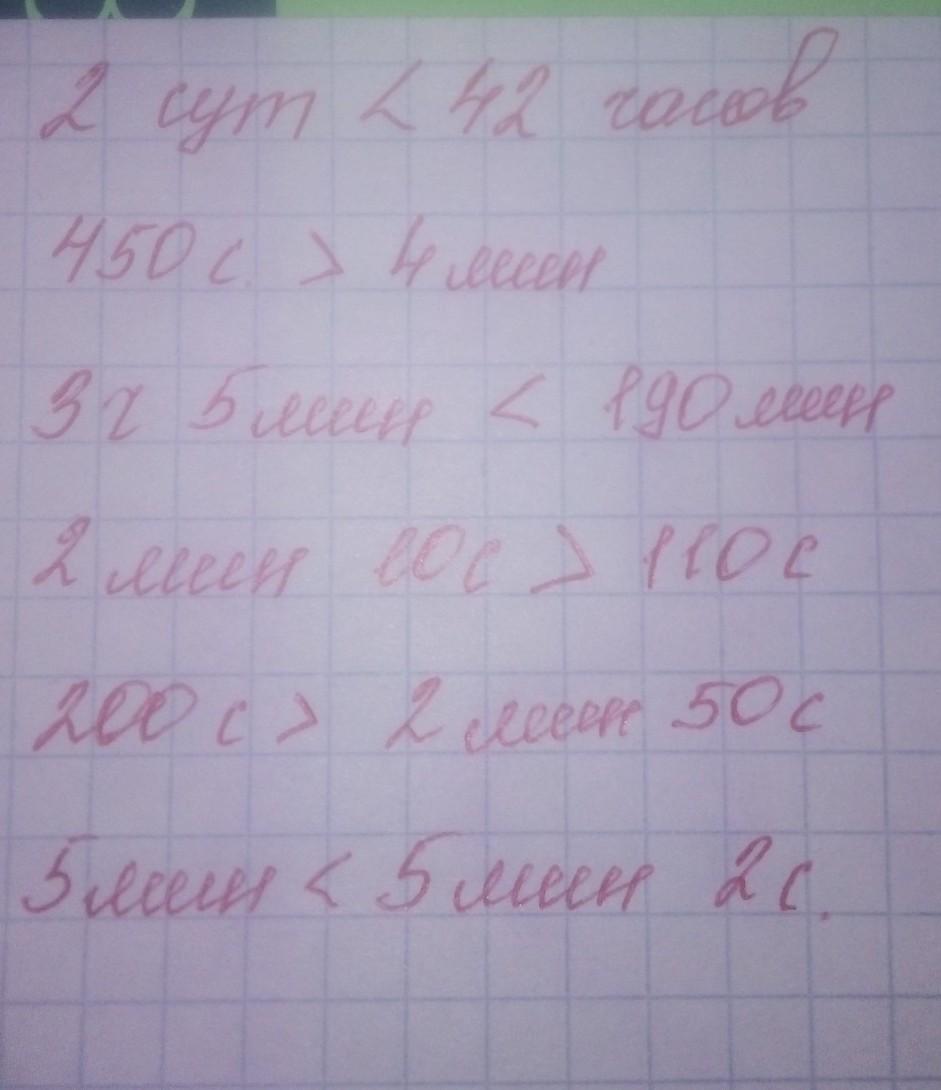 2 сут < 42 часов
450 с. > 4 мин
3 ч 5 мин < 190 мин
2 мин 10 с > 110 с
200 с > 2 мин 50 с
5 мин < 5 мин 2 с.